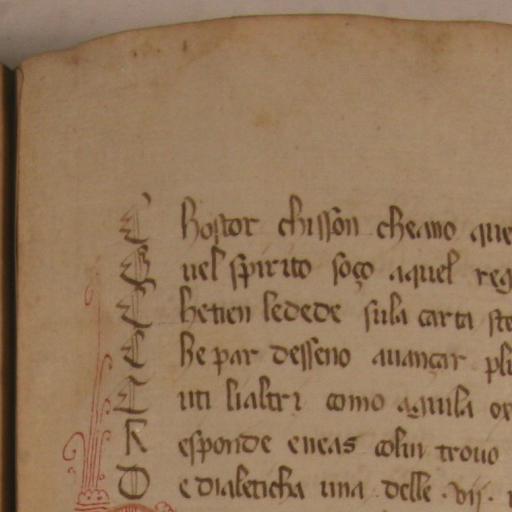 C hostor chisson cheano que
Q uel spirito soço aquel reg
C hetien ledede sula carta ste
C he par desseno auançar plu
T uti lialtri como aquila or
R esponde eneas colui trouo
D e dialeticha una delle .vij.